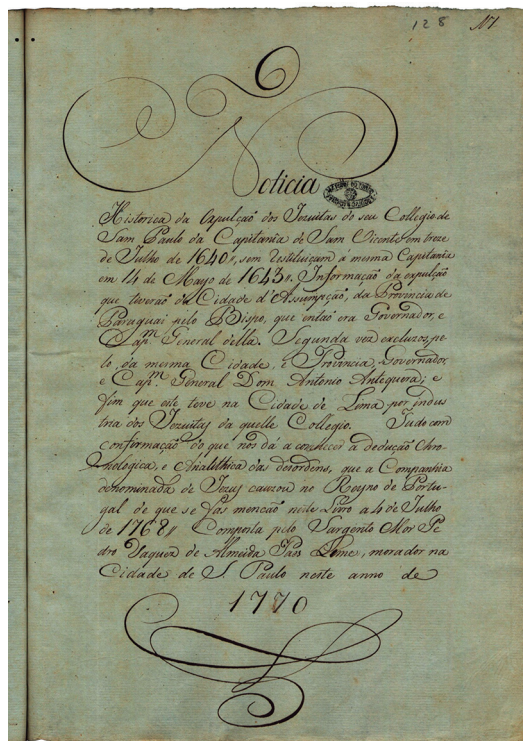 128 111
Noticia
Historica da Expulçaõ dos Jezuitas do seu Collegio de
Sam Paulo da Capitania de Sam Vicente em treze
de Julho de 1640, e sem restituiçam á mesma Capitania
em 14 de Mayo de 1643. Informaçaõ da expulçaõ
que tiveraõ da Cidade d'Assumpçaõ, da Provincia de
Paraguai pelo Bispo, que entaõ era Governador, e
Capm. General della. Segunda vez excluzos, pe-
lo, da mesma Cidade, e Provincia, Governador,
e Capm. General Dom Antonio Antequera; e
fim que este teve na Cidade de Lima por indus
tria dos Jezuitas da quelle Collegio. Tudo com
confirmaçaõ do que nos dá a conhecer a dedução Chro-
nologica, e Analithica das desordens, que a Companhia
denominada de Jezus cauzou no Reyno de Portu-
gal de que se fás mençaõ neste Livro a 4 de Julho
de 1768 Composta pelo Sargento Mor Pe
dro Taques de Almeida Paes Leme, morador na
Cidade de S. Paulo neste anno de
1770